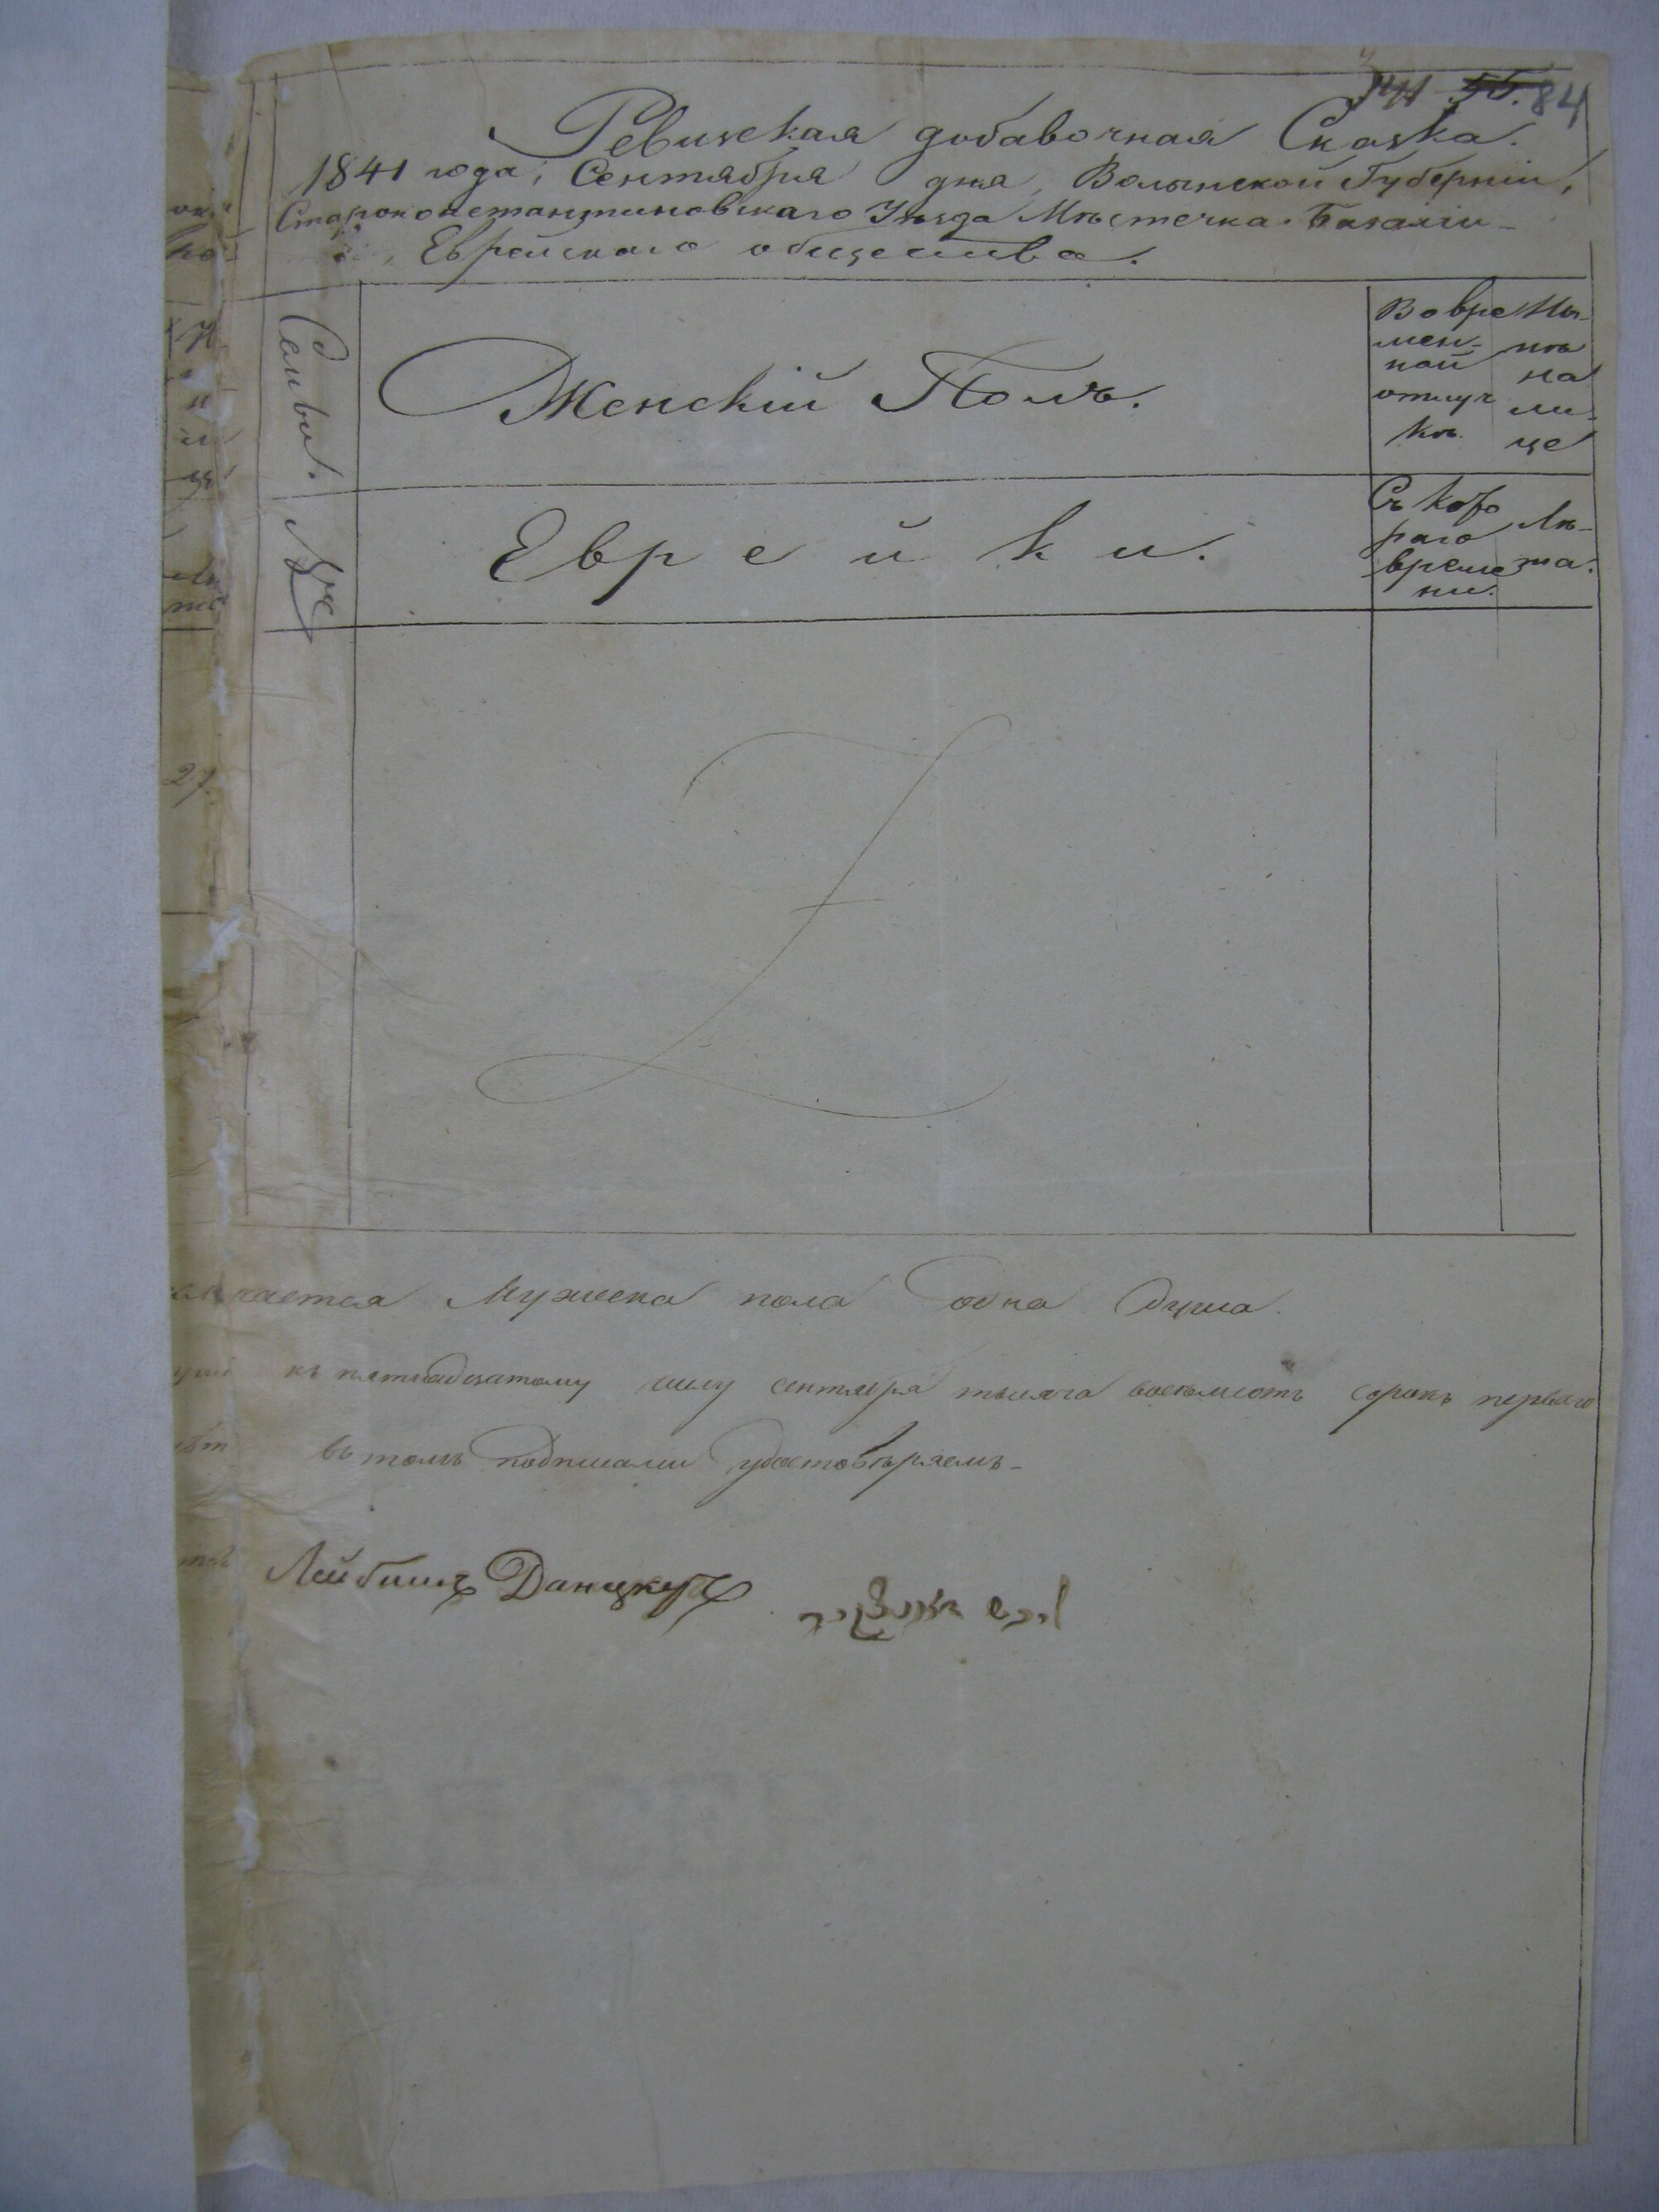 84
Ревизская добавочная Сказка.
1841 года, Сентября дня, Волынской Губерніи,
Староконстантиновскаго Уѣзда Мѣстечка Базаліи
Еврейскаго общества.
Семьи.
№
Женскій Полъ.
Во вре
мен-
ной
отлуч
кѣ.
Ны-
нѣ
на
ли-
це
Еврейки.
Съ кото
раго
време
ни.
Лѣ-
та.
27.
Мужеска пола одна душа.
къ пятнадцатому числу сентября тысяча восемьсотъ сорокъ перваго
въ томъ подписами удостовѣряемъ
Лейбишъ